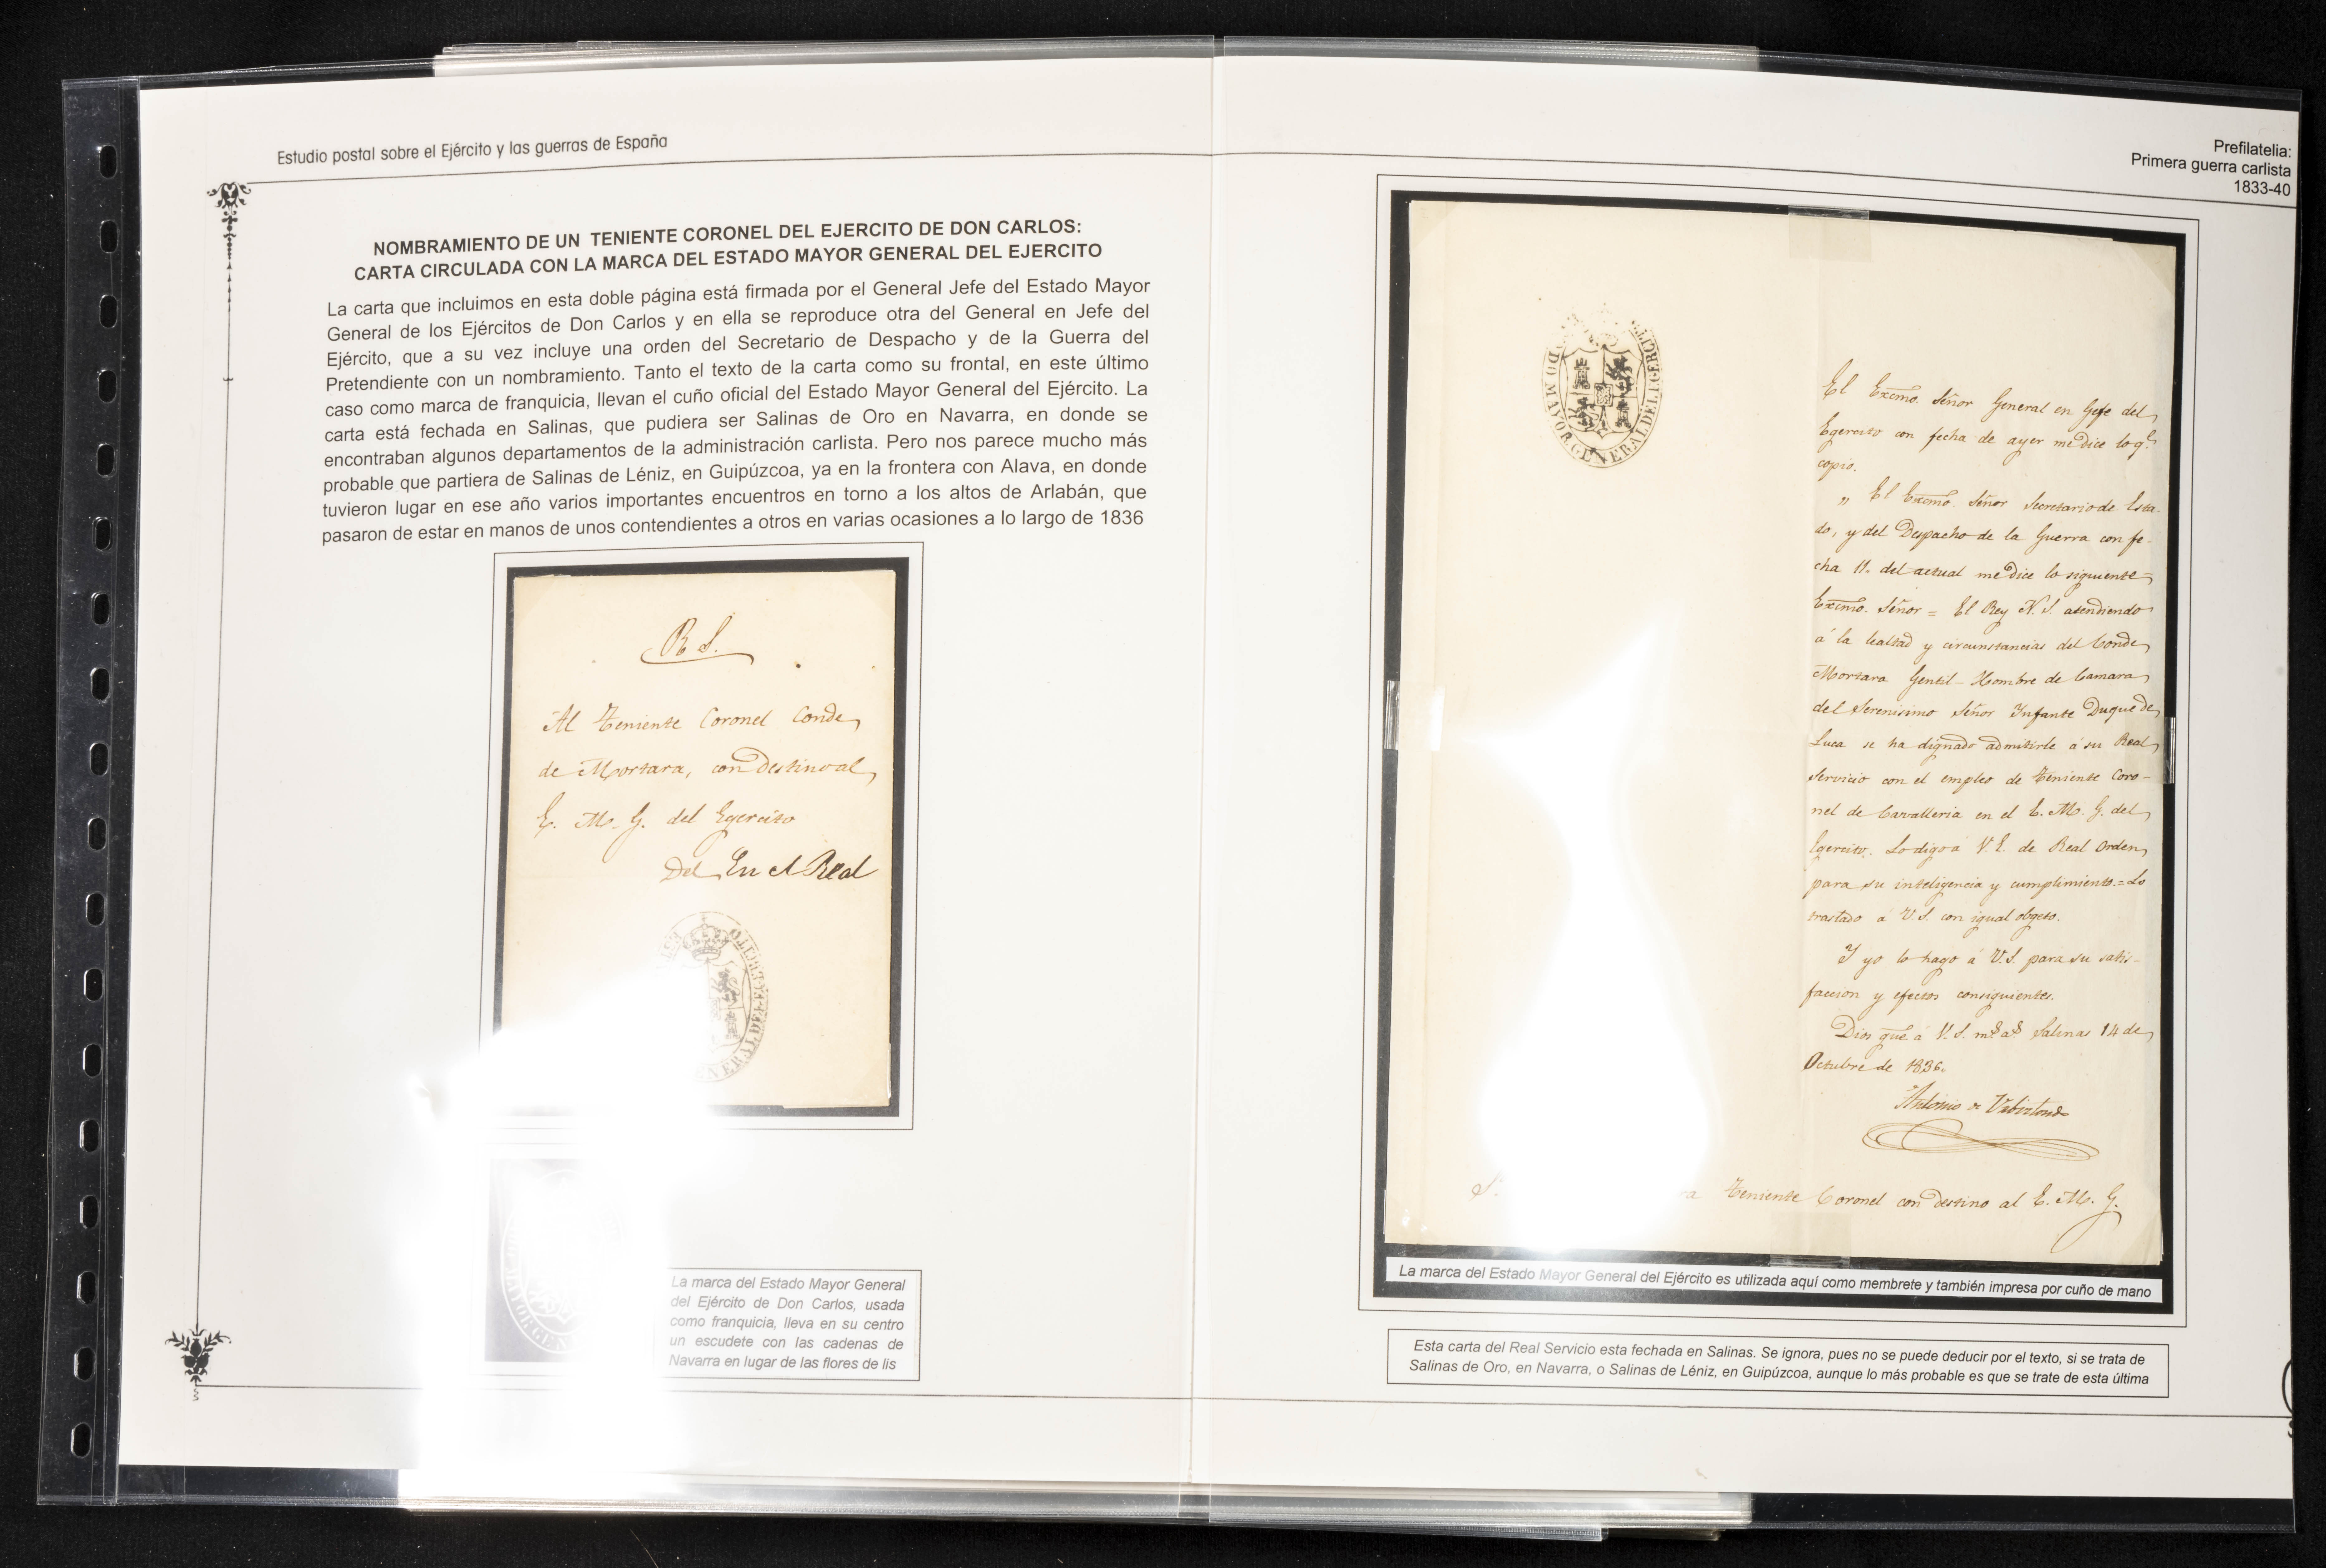 Estudio postal sobre el Ejército y las guerras de España
NOMBRAMIENTO DE UN TENIENTE CORONEL DEL EJERCITO DE DON CARLOS:
CARTA CIRCULADA CON LA MARCA DEL ESTADO MAYOR GENERAL DEL EJERCITO
La carta que incluimos en esta doble página está firmada por el General Jefe del Estado Mayor
General de los Ejércitos de Don Carlos y en ella se reproduce otra del General en Jefe del
Ejército, que a su vez incluye una orden del Secretario de Despacho y de la Guerra del
Pretendiente con un nombramiento. Tanto el texto de la carta como su frontal, en este último
caso como marca de franquicia, llevan el cuño oficial del Estado Mayor General del Ejército. La
carta está fechada en Salinas, que pudiera ser Salinas de Oro en Navarra, en donde se
encontraban algunos departamentos de la administración carlista. Pero nos parece mucho más
probable que partiera de Salinas de Léniz, en Guipúzcoa, ya en la frontera con Alava, en donde
tuvieron lugar en ese año varios importantes encuentros en torno a los altos de Arlabán, que
pasaron de estar en manos de unos contendientes a otros en varias ocasiones a lo largo de 1836
R S.
Al Teniente Coronel Conde
de Mortara, con destino al
E. M. G. del Egercito
Del En el Real
GENERAL DEL EJERCITO
MAYOR GEN
La marca del Estado Mayor General
del Ejército de Don Carlos, usada
como franquicia, lleva en su centro
un escudete con las cadenas de
Navarra en lugar de las flores de lis
Prefilatelia:
Primera guerra carlista
1833-40
DO MAYOR GENERAL DEL EJERCITO
El Exmo. Señor General en Gefe del
Egercito con fecha de ayer me dice lo q.e
copio.
„ El Exmo. Señor Secretario de Esta-
do, y del Despacho de la Guerra con fe-
cha 11. del actual me dice lo siguiente=
Exmo. Señor = El Rey N. S. atendiendo
á la lealtad y circunstancias del Conde
Mortara Gentil-Hombre de Camara
del Serenisimo Señor Infante Duque de
Luca se ha dignado admitirle á su Real
Servicio con el empleo de Teniente Coro-
nel de Cavalleria en el E. M. G. del
Egercito. Lo digo á V. E. de Real Orden
para su inteligencia y cumplimiento.= Lo
traslado á V. S. con igual obgeto.
Y yo lo hago á V. S. para su satis-
faccion y efectos consiguientes.
Dios gue á V. S. m.s a.s Salinas 14 de
Octubre de 1836.
Antonio de Urbiztondo
S.r Teniente Coronel con destino al E. M. G.
La marca del Estado Mayor General del Ejército es utilizada aquí como membrete y también impresa por cuño de mano
Esta carta del Real Servicio esta fechada en Salinas. Se ignora, pues no se puede deducir por el texto, si se trata de
Salinas de Oro, en Navarra, o Salinas de Léniz, en Guipúzcoa, aunque lo más probable es que se trate de esta última